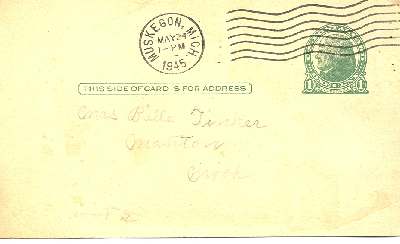 MUSKEGON, MICH.
MAY 24
1-PM
1945
THIS SIDE OF CARD IS FOR ADDRESS
1 1
Mrs Belle Tinker
Manton
Mich